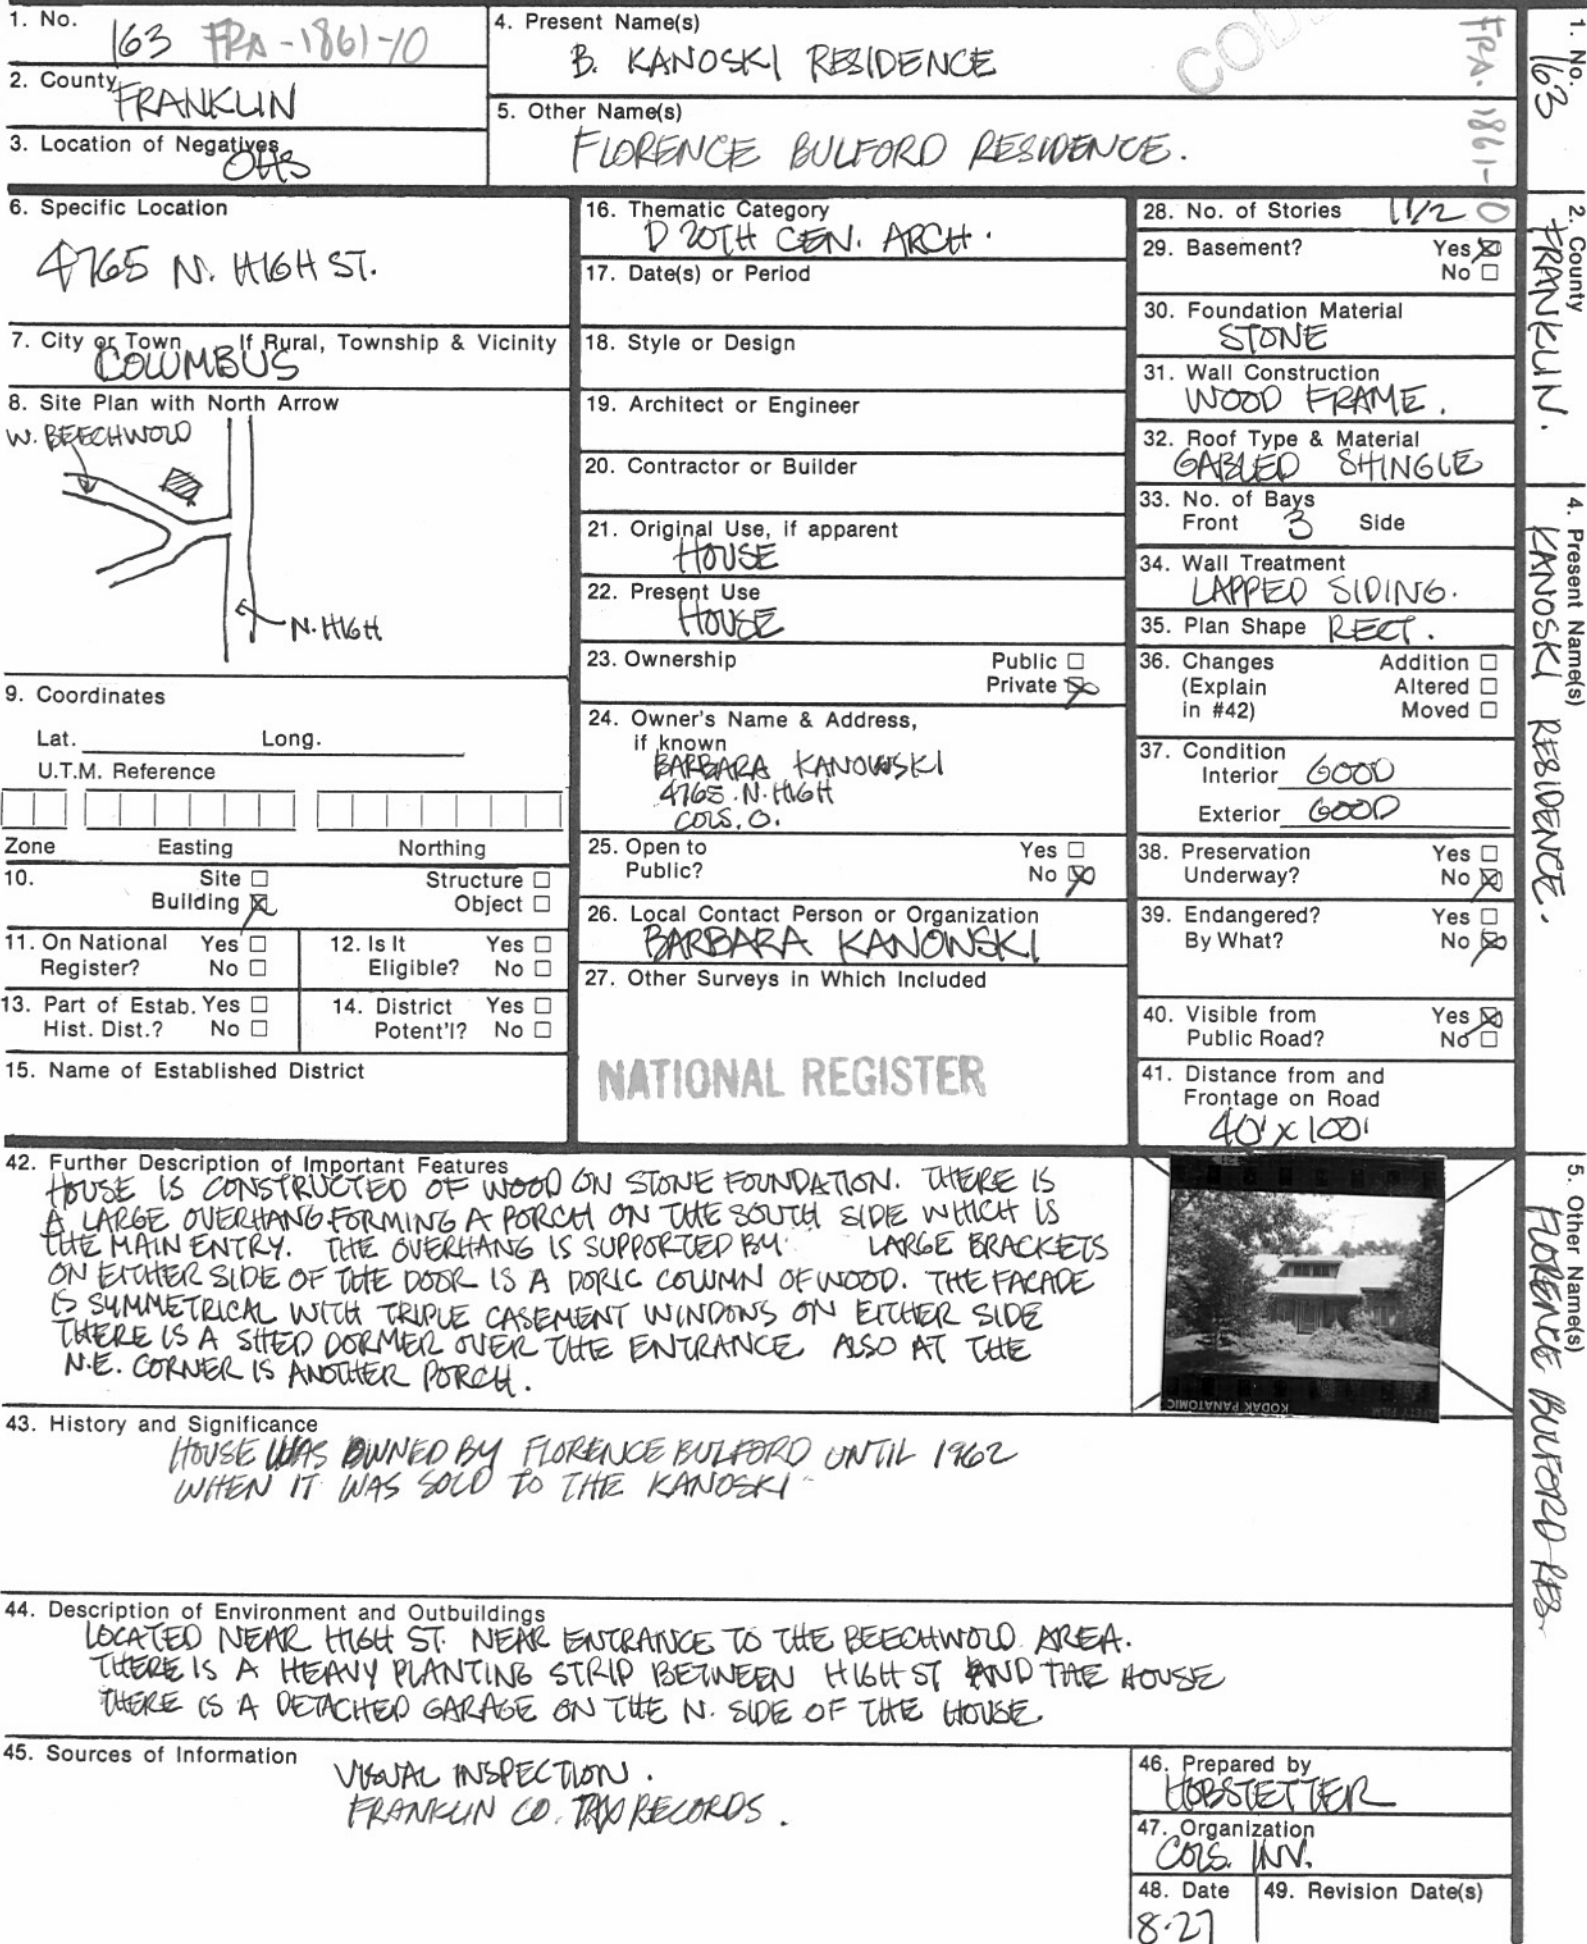 1. No.
163 FRA-1861-10
2. County
FRANKLIN
3. Location of Negatives
OHS
4. Present Name(s)
B. KANOSKI RESIDENCE
5. Other Name(s)
FLORENCE BULFORD RESIDENCE.
FRA-1861-10
6. Specific Location
4765 N. HIGH ST.
7. City or Town If Rural, Township & Vicinity
COLUMBUS
8. Site Plan with North Arrow
W. BEECHWOLD
N. HIGH
9. Coordinates
Lat. Long.
U.T.M. Reference
Zone Easting Northing
10. Site Structure
Building Object
11. On National Register? Yes No
12. Is It Eligible? Yes No
13. Part of Estab. Hist. Dist.? Yes No
14. District Potent'l? Yes No
15. Name of Established District
16. Thematic Category
D 20TH CEN. ARCH.
17. Date(s) or Period
18. Style or Design
19. Architect or Engineer
20. Contractor or Builder
21. Original Use, if apparent
HOUSE
22. Present Use
HOUSE
23. Ownership Public
Private
24. Owner's Name & Address,
if known
BARBARA KANOWSKI
4765 N. HIGH
COLS. O.
25. Open to Yes
Public? No
26. Local Contact Person or Organization
BARBARA KANOWSKI
27. Other Surveys in Which Included
NATIONAL REGISTER
28. No. of Stories 1 1/2
29. Basement? Yes
No
30. Foundation Material
STONE
31. Wall Construction
WOOD FRAME.
32. Roof Type & Material
GABLED SHINGLE
33. No. of Bays
Front 3 Side
34. Wall Treatment
LAPPED SIDING.
35. Plan Shape RECT.
36. Changes Addition
(Explain Altered
in #42) Moved
37. Condition
Interior GOOD
Exterior GOOD
38. Preservation Yes
Underway? No
39. Endangered? Yes
By What? No
40. Visible from Yes
Public Road? No
41. Distance from and
Frontage on Road
40' x 100'
42. Further Description of Important Features
HOUSE IS CONSTRUCTED OF WOOD ON STONE FOUNDATION. THERE IS
A LARGE OVERHANG FORMING A PORCH ON THE SOUTH SIDE WHICH IS
THE MAIN ENTRY. THE OVERHANG IS SUPPORTED BY LARGE BRACKETS
ON EITHER SIDE OF THE DOOR IS A DORIC COLUMN OF WOOD. THE FACADE
IS SYMMETRICAL WITH TRIPLE CASEMENT WINDOWS ON EITHER SIDE
THERE IS A SHED DORMER OVER THE ENTRANCE ALSO AT THE
N.E. CORNER IS ANOTHER PORCH.
KODAK PANATOMIC
43. History and Significance
HOUSE WAS OWNED BY FLORENCE BULFORD UNTIL 1962
WHEN IT WAS SOLD TO THE KANOSKI
44. Description of Environment and Outbuildings
LOCATED NEAR HIGH ST. NEAR ENTRANCE TO THE BEECHWOLD AREA.
THERE IS A HEAVY PLANTING STRIP BETWEEN HIGH ST AND THE HOUSE
THERE IS A DETACHED GARAGE ON THE N. SIDE OF THE HOUSE.
45. Sources of Information
VISUAL INSPECTION.
FRANKLIN CO. TAX RECORDS.
46. Prepared by
HOBSTETTER
47. Organization
COLS. INV.
48. Date
8-27
49. Revision Date(s)
1. No.
163
2. County
FRANKLIN.
4. Present Name(s)
KANOSKI RESIDENCE.
5. Other Name(s)
FLORENCE BULFORD RES.